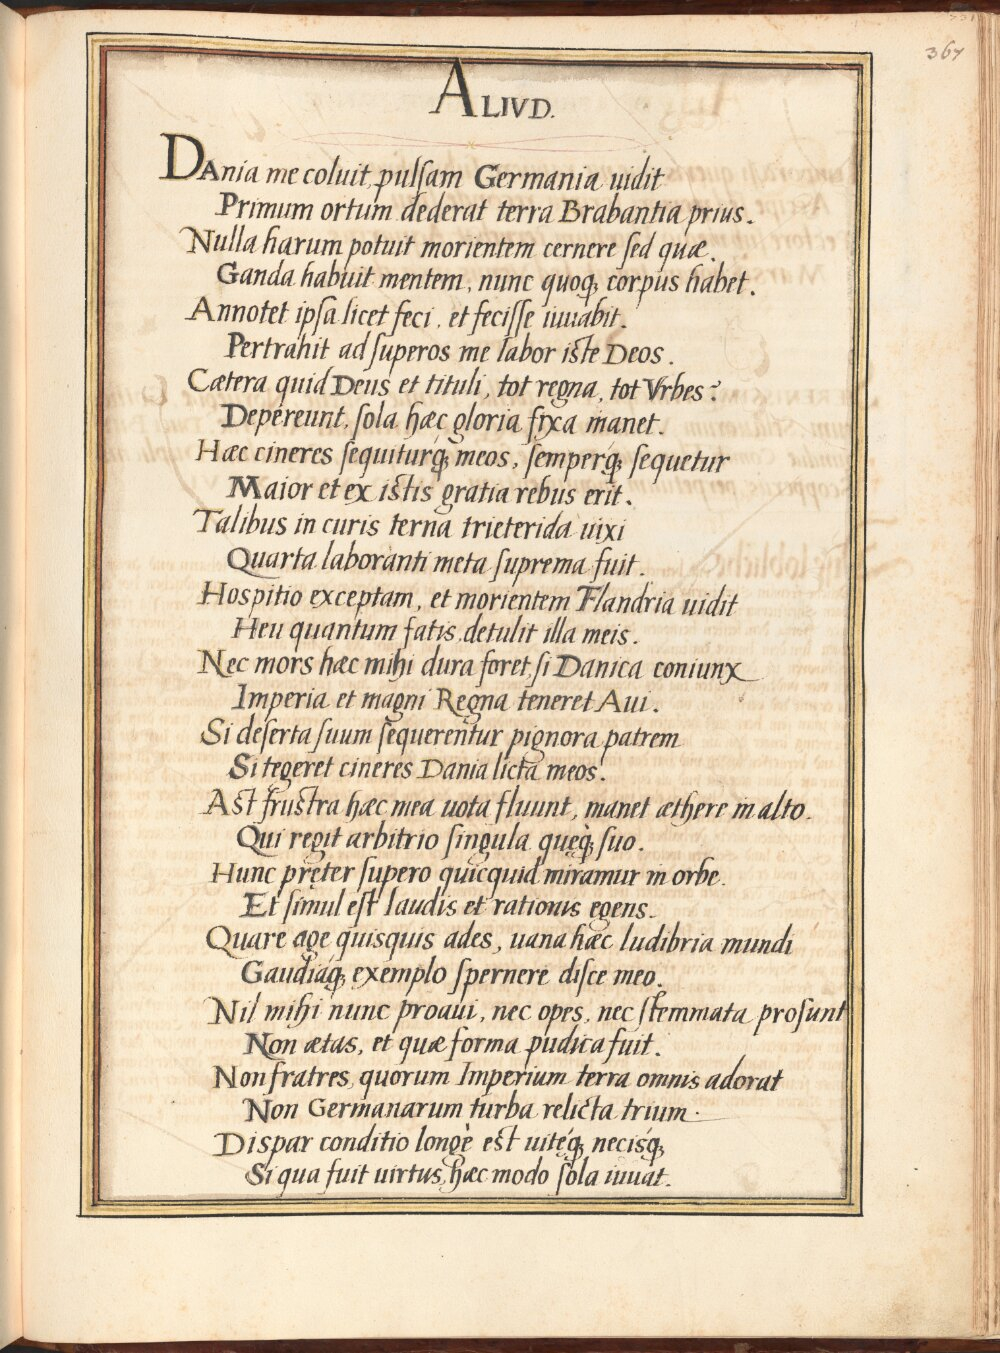 367
ALIVD.
DAnia me coluit, pulſam Germania uidit
Primum ortum dederat terra Brabantia prius.
Nulla harum potuit morientem cernere ſed quæ.
Ganda habuit mentem, nunc quoq; corpus habet.
Annotet ipſa licet feci, et feciſſe iuuabit.
Pertrahit ad ſuperos me labor iſte Deos.
Cætera quid Deus et tituli, tot regna, tot Vrbes?
Depereunt, ſola hæc gloria fixa manet.
Hæc cineres ſequiturq́; meos, ſemperq́; ſequetur
Maior et ex iſtis gratia rebus erit.
Talibus in curis terna trieterida uixi
Quarta laboranti meta ſuprema fuit.
Hospitio exceptam, et morientem Flandria uidit
Heu quantum fatis detulit illa meis.
Nec mors hæc mihi dura foret, ſi Danica coniunx
Imperia et magni Regna teneret Aui.
Si deſerta ſuum ſequerentur pignora patrem
Si tegeret cineres Dania licta meos.
Aſt fruſtra hæc mea uota fluunt, manet æthere in alto.
Qui regit arbitrio ſingula quęq́; ſuo.
Hunc pręter ſupero quicquid miramur in orbe.
Et ſimul eſt laudis et rationis egens.
Quare age quisquis ades, uana hæc ludibria mundi
Gaudiaq́; exemplo ſpernere diſce meo.
Nil mihi nunc proaui, nec opes, nec ſtemmata proſunt
Non ætas, et quæ forma pudica fuit.
Non fratres, quorum Imperium terra omnis adorat
Non Germanarum turba relicta trium.
Dispar conditio longè eſt uitęq́; necisq́;
Si qua fuit uirtus, hæc modo ſola iuuat.